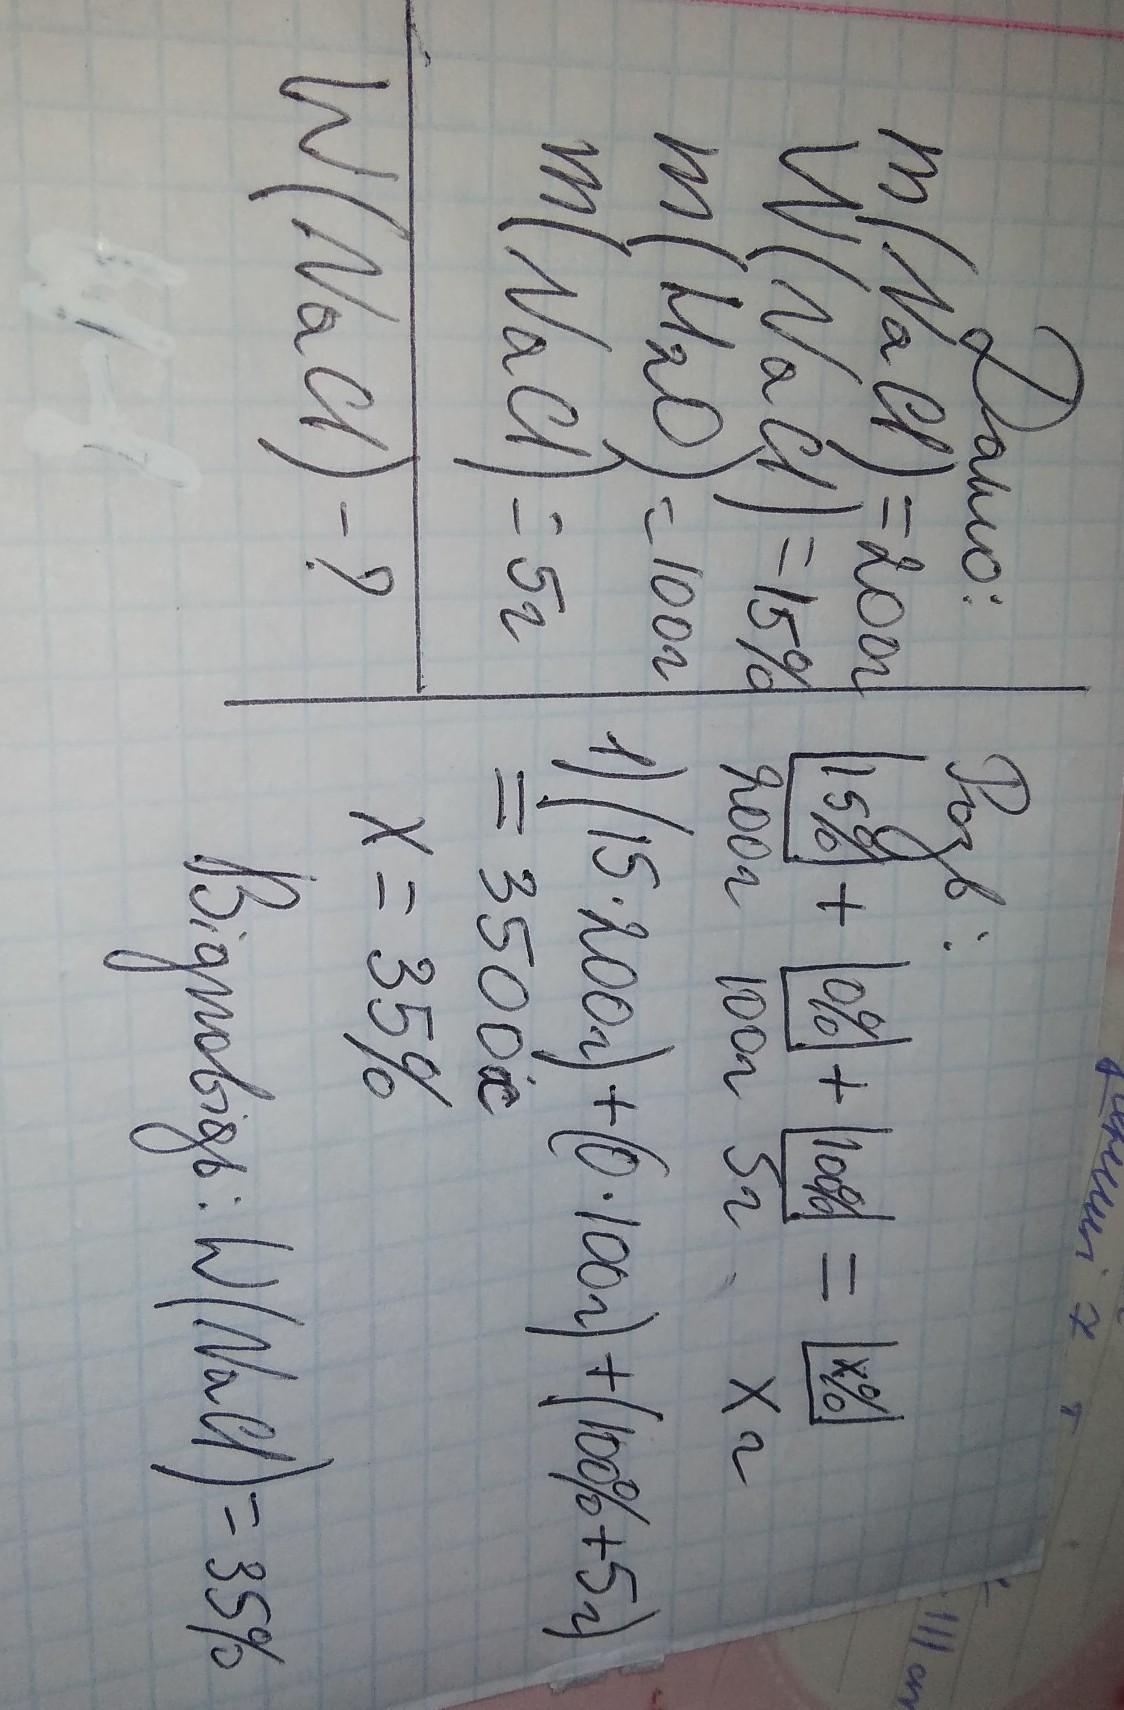 Дано:
m(NaCl)=200г
W(NaCl)=15%
m(H2O)=100г
m(NaCl)=5г
W(NaCl)-?
Розв:
15% + 0% + 100% = x%
200г 100г 5г xг
1)(15·200г)+(0·100г)+(100%+5г)
=3500
x=35%
Відповідь: W(NaCl)=35%